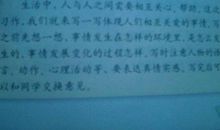 生活中,人与人之间需要相互关心,帮助。这次
习作,我们就来写一写体现人们相互关爱的事情。
之前先想一想,事情发生在怎样的环境里,是怎么发
生的,事情发展变化的过程怎样,写时注意人物的语
言、动作、心理活动等,要表达真情实感。写完后
以和同学交换意见。